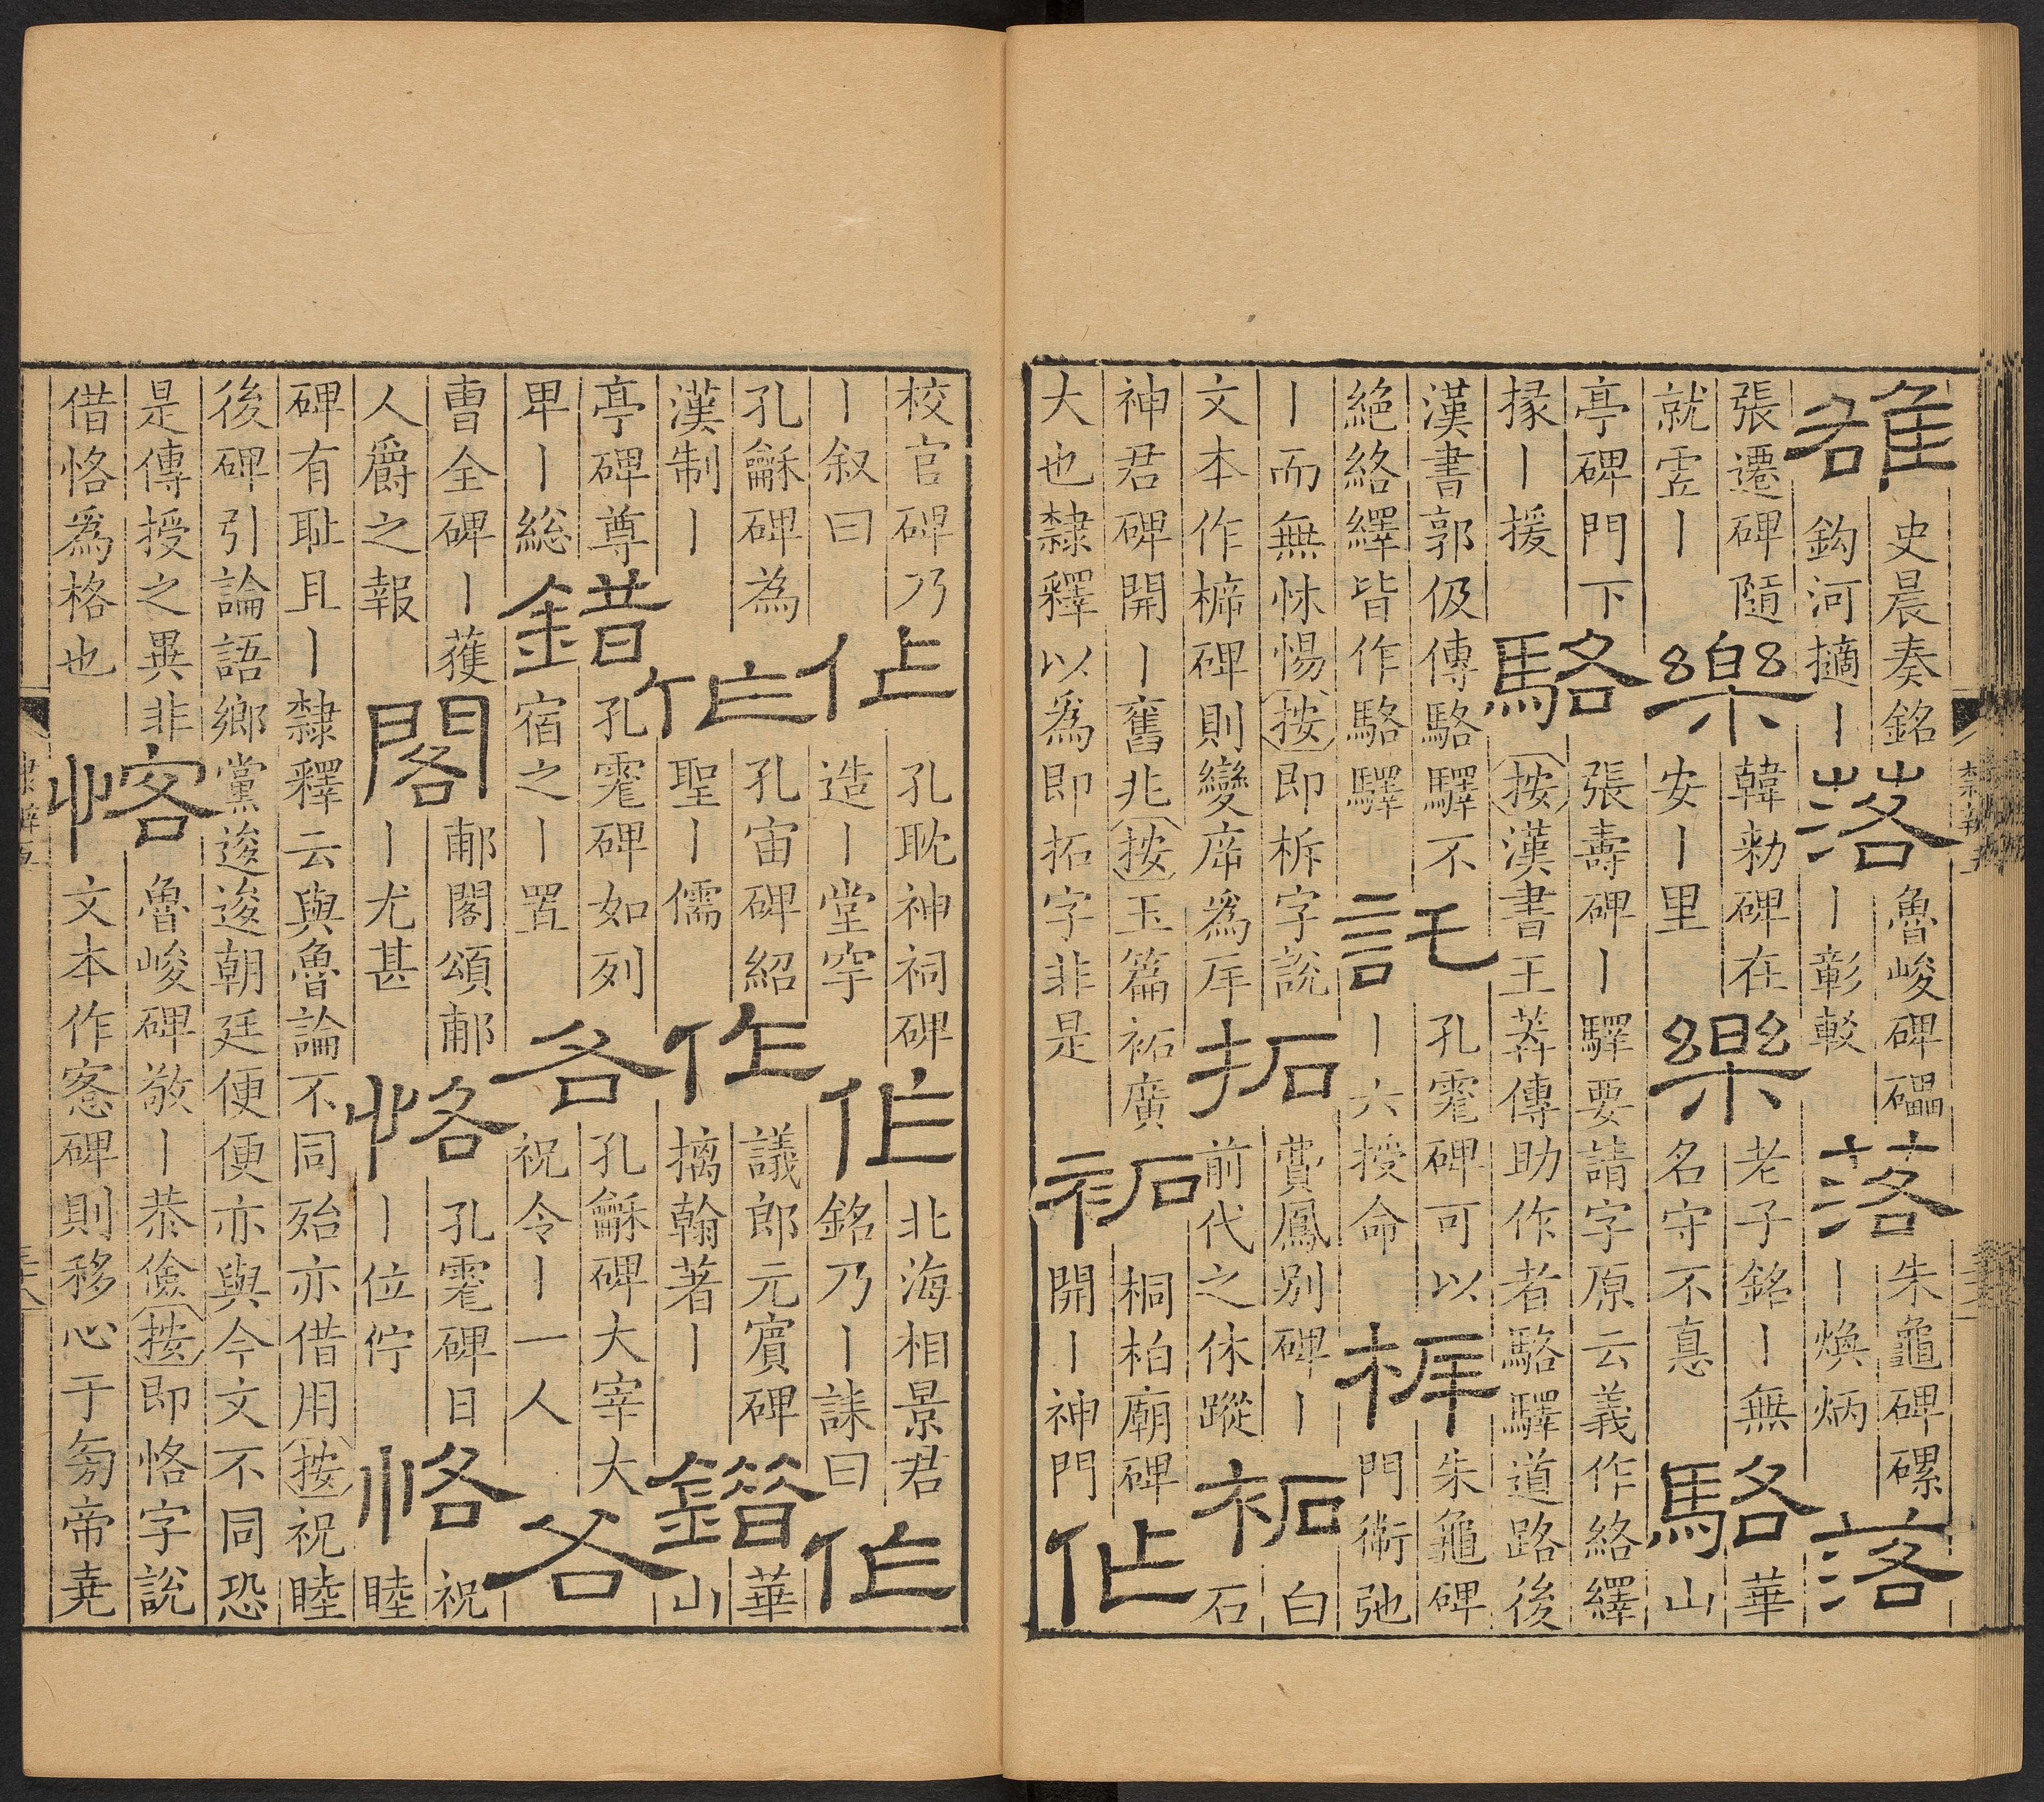 雒
史晨奏銘
鈎河擿丨
落
魯峻碑礧
丨彰較
落
朱龜碑磥
丨煥炳
落
張遷碑隨
就虗丨
樂
韓勑碑在
安丨里
樂
老子銘丨無
名守不惪
駱
華
山
亭碑門下
掾丨援
駱
張壽碑丨驛要請字原云義作絡繹
按漢書王莽傳助作者駱驛道路後
漢書郭伋傳駱驛不
絕絡繹皆作駱驛
託
孔霮碑可以
丨六授命
柝
朱龜碑
門衖弛
丨而無怵惕按即柝字說
文本作㯕碑則變㡿爲厈
拓
費鳳別碑丨
前代之休蹤
祏
白
石
神君碑開丨舊兆按玉篇祏廣
大也隸釋以爲即拓字非是
祏
桐柏廟碑
開丨神門
作
校官碑乃
丨叙曰
作
孔耽神祠碑
造丨堂穿
作
北海相景君
銘乃丨誄曰
作
孔龢碑為
漢制丨
作
孔宙碑紹
聖丨儒
作
議郎元賓碑
摛翰著丨
錯
華
山
亭碑尊
卑丨総
錯
孔霮碑如列
宿之丨置
各
孔龢碑大宰大
祝令丨一人
各
曹全碑丨獲
人爵之報
閣
郙閣頌郙
丨尤甚
恪
孔霮碑日
丨位佇
恪
祝
睦
碑有耻且丨隸釋云與魯論不同殆亦借用按祝睦
後碑引論語鄉黨逡逡朝廷便便亦與今文不同恐
是傳授之異非
借恪爲格也
愘
魯峻碑敬丨恭儉按即恪字說
文本作愙碑則移心于㫄帝堯